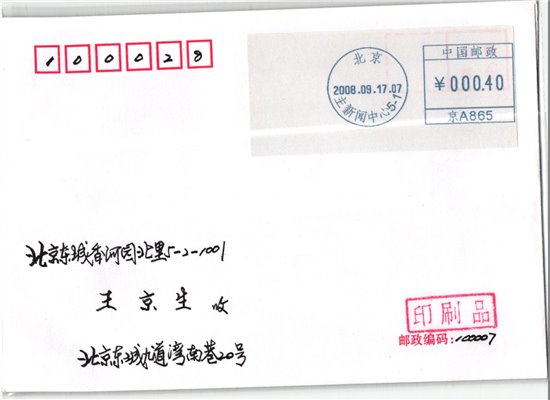 100028
北京
2008.09.17.07
主新闻中心5-1
中国邮政
¥000.40
京A865
北京东城香河园北里5-2-1001
王京生 收
印刷品
邮政编码:100007
北京东城北道湾南巷20号